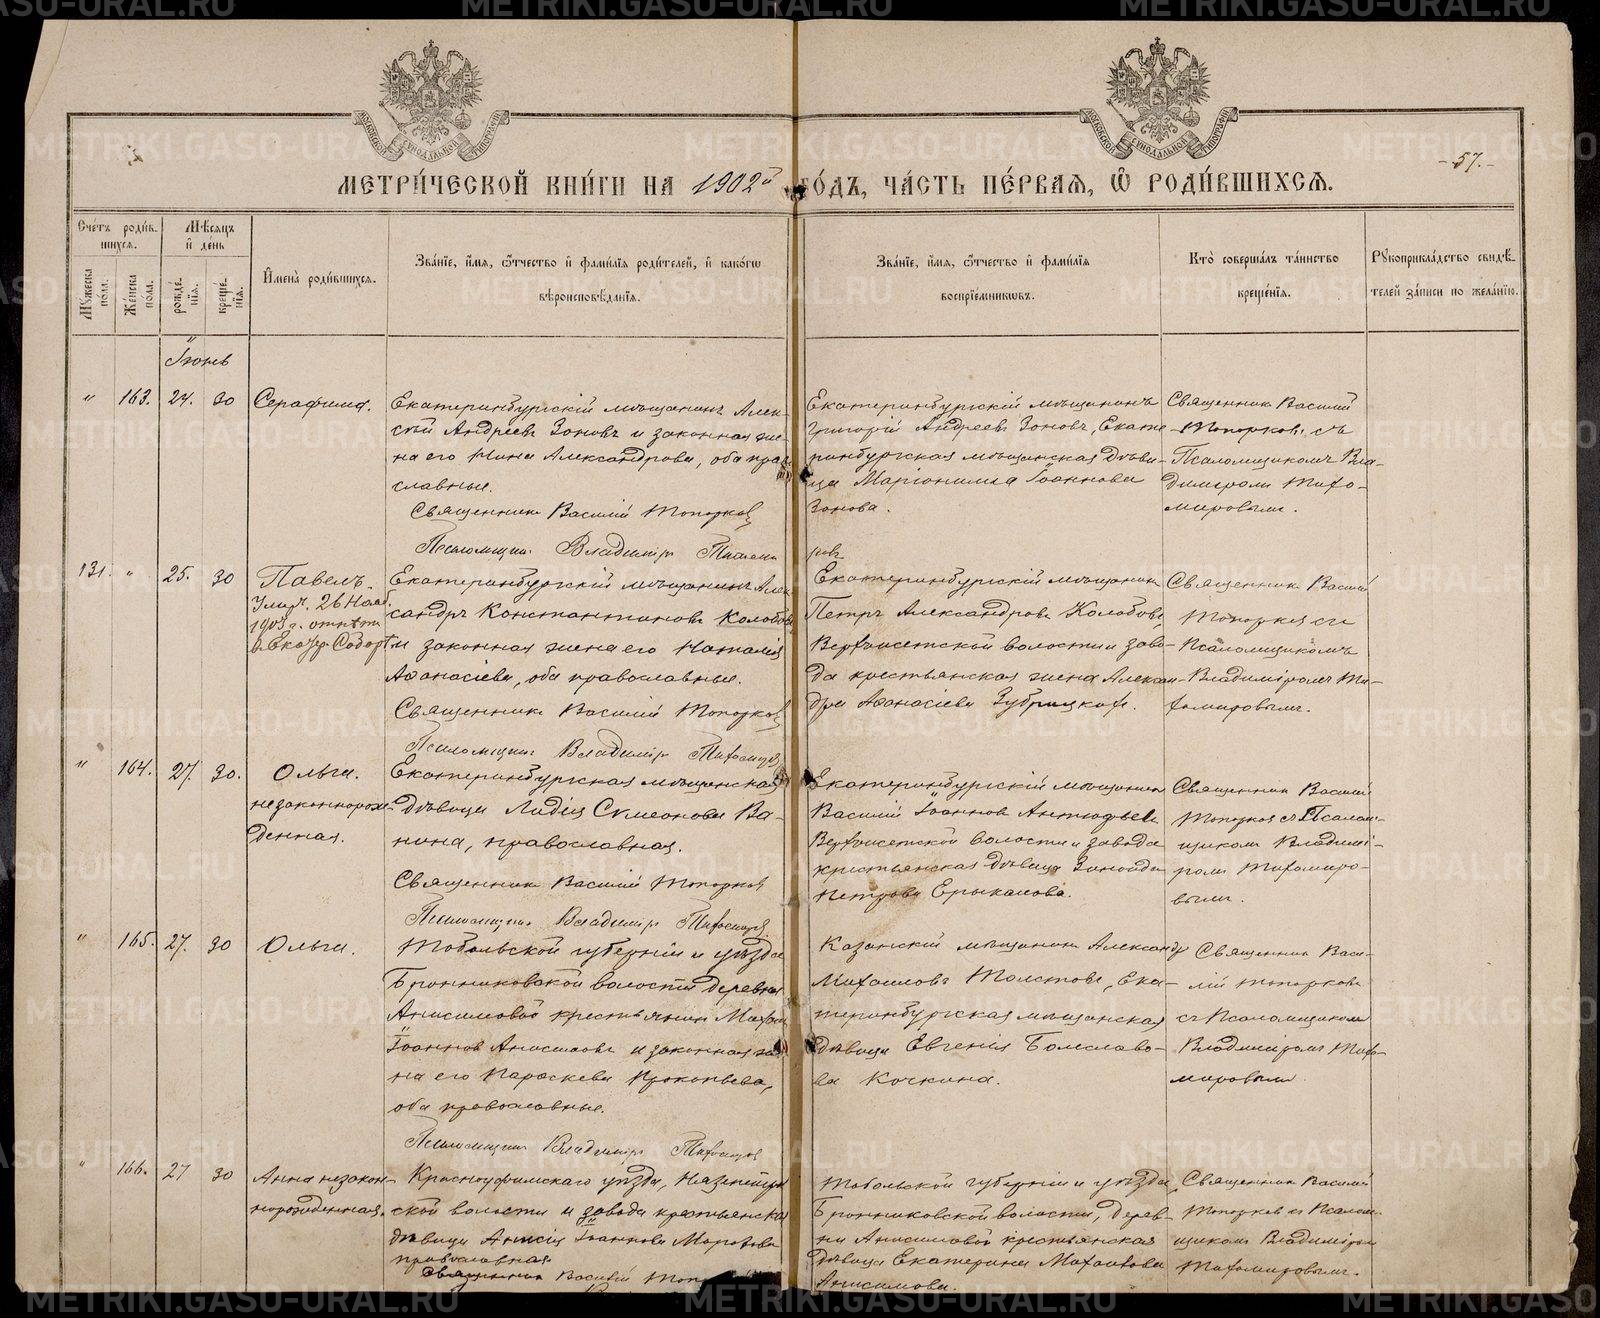 METRIKI.GASO-URAL.RU
МОСКОВСКОЙ СѴНОДАЛЬНОЙ ТИПОГРАФІИ
МОСКОВСКОЙ СѴНОДАЛЬНОЙ ТИПОГРАФІИ
-57.-
МЕТРИ́ЧЕСКОЙ КНИ́ГИ НА 1902й ГО́ДЪ, ЧА́СТЬ ПЕ́РВАѦ, Ѡ҆ РОДИ́ВШИХСѦ.
Сче́тъ роди́в-
шихсѧ.
Мꙋ́жеска пола.
Же́нска пола.
Мѣ́сѧцъ
и҆ де́нь
рожде́-
нїѧ.
креще́-
нїѧ.
И҆мена̀ роди́вшихсѧ.
Зва́нїе, и҆́мѧ, ѻ҆́тчество и҆ фами́лїѧ роди́телей, и҆ како́гѡ
вѣроисповѣ́данїѧ.
Зва́нїе, и҆́мѧ, ѻ҆́тчество и҆ фами́лїѧ
воспрїе́мникѡвъ.
Кто̀ соверша́лъ та́инство
креще́нїѧ.
Рꙋкоприкла́дство свидѣ́-
телей за́писи по жела́нїю.
Іюнь
" 163. 24. 30 Серафима.
Екатеринбургскій мѣщанинъ Алек-
сѣй Андреевъ Зоновъ и законная же-
на его Нина Александрова, оба прав
славные.
Священникъ Василій Топорков
Псаломщикъ Владимір Тихоми
ров
Екатеринбургскій мѣщанинъ
Григорій Андреевъ Зоновъ, Екате-
ринбургская мѣщанская дѣви-
ца Маріонилла Іоаннова
Зонова.
Священник Василій
Топорковъ съ
Псаломщикомъ Вла-
диміромъ Тихо-
мировымъ.
131. " 25. 30 Павелъ.
Умер. 26 Нояб.
1903 г. отпѣтъ
в Екатр. Соборѣ
Екатеринбургскій мѣщанинъ Алек
сандръ Константиновъ Колобов
и законная жена его Наталія
Аѳанасіева, оба православные.
Священникъ Василій Топорков
Псаломщикъ Владимір Тихомиров
Екатеринбургскій мѣщанинъ
Петръ Александровъ Колобовъ,
Верхъисетской волости и заво-
да крестьянская жена Алексан-
дра Аѳанасіева Зубрицкая.
Священникъ Василій
Топорков съ
Псаломщикомъ
Владиміромъ Ти-
хомировымъ.
" 164. 27. 30. Ольга.
незаконорож-
денная.
Екатеринбургская мѣщанская
дѣвица Лидія Симеонова Ва-
нина, православная.
Священникъ Василій Топорков
Псаломщикъ Владимір Тихомиров
Екатеринбургскій мѣщанинъ
Василій Іоаннов Антюфьевъ
Верхъисетской волости и завода
крестьянская дѣвица Зинаида
Петрова Ерыкалова.
Священникъ Василій
Топорков съ Псалом-
щиком Владимі-
ромъ Тихомиро-
вымъ.
" 165. 27. 30 Ольга.
Тобольской губерніи и уѣзда
Бронниковской волости деревни
Анисимовой крестьянин
Іоаннов Анисимовъ и законная же
на его Параскева Прокопьева,
оба православные.
Псаломщикъ Владимір Тихомиров
Казанскій мѣщанинъ Александр
Михаиловъ Толстовъ, Ека-
теринбургская мѣщанская
дѣвица Евгенія Болеславо-
ва Кочкина.
Священник Васи-
лій Топорковъ
съ Псаломщиком
Владиміромъ Тихо-
мировымъ
" 166. 27 30 Анна незакон-
норожденная.
Красноуфимскаго уѣзда, Нязепетров
ской волости и завода крестьянска
дѣвица Анисія Іоаннова Морозова
православная
Священник Василій Топ
Тобольской губерніи и уѣзда
Бронниковской волости, дерев-
ни Анисимовой крестьянская
дѣвица Екатерина Михаилова
Анисимова.
Священник Василій
Топорков съ Псалом-
щиком Владиміром
Тихомировымъ.